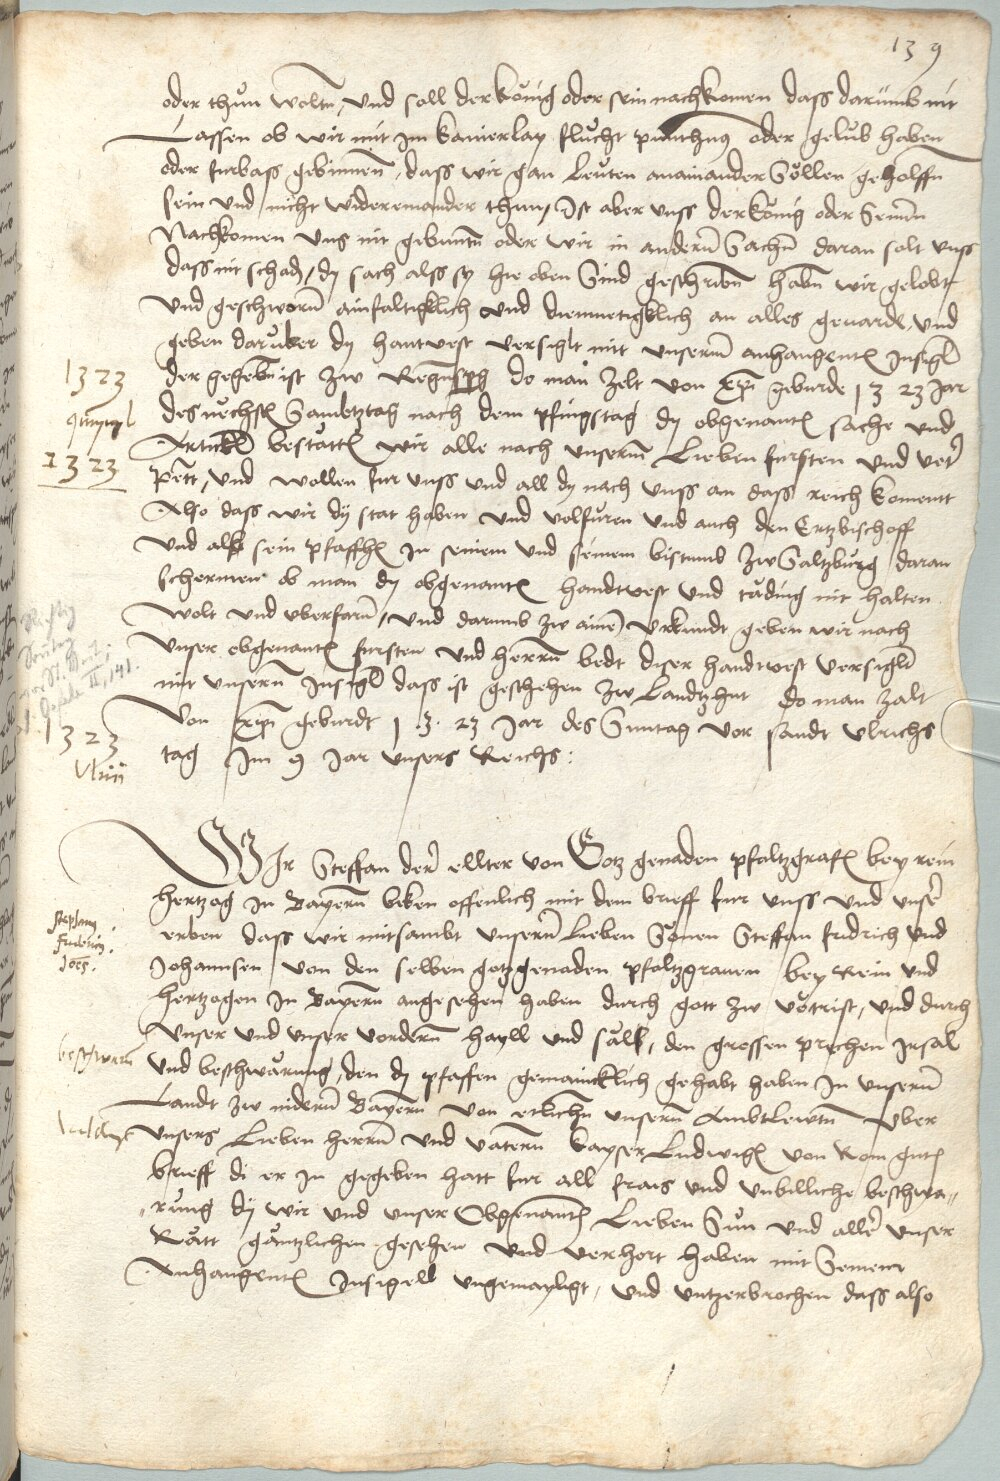 139
oder thun woltn, und soll der König oder sein nachkomen dass darumb nit
Lassen ob wir mit im kainerlay flucht puntnus oder gelub haben
oder furbass gebinnen, dass wir gan Leuten anainander Söllen geholffn
sein und nicht widereinander thun, Ist aber unss der König oder Seinen
Nachkomen uns nit gebunten oder wir in andern Sachen daran solt unss
dass nit schadn, dy sach alss sy hie oben Sind geschribn habn wir gelobt
und geschworn ainfaltigklich und diemuetigklich an alles geuarde, und
geben daruber dy hantvest versiglt mit unserm anhangentn Insigl
1323
der gegebn ist zw Regenspg do man zelt von Xpi geburde 1323 Jar
des nechstn Sambtztag nach dem pfingstag dy obgenantn sache und
1323
Artickl bestättn wir alle nach unserm Lieben fursten und vetr
Pett, und wollen fur unss und all dy nach unss an dass reich koment
Also dass wir dy stat haben und volfuren und auch den Ertzbischoff
und all sein pfaffhn In seinem und seinem bistumb zw Saltzburg daran
schermen ob man dy obgenantn handtvest und täding nit halten
wolt und uberfarn, und darumb zw ainem Urkundt geben wir nach
unser obgenantn fursten und herrn bedt diser handtvest versiglt
mit unserm Insigl dass ist geschehen zw Landtzhut do man zalt
II, 141.
1323
von Xpi geburdt 1.3.23 Jar des Suntag vor sandt Ulrichs
tag Im 9 Jar unsers Reichs:
WIr Steffan der ellter von Gotz genaden pfaltzgrafn bey rein
hertzog In Bayern beken offenlich mit dem brieff fur unss und unser
Stephany.
Friderici.
Joes.
erben dass wir mitsambt unsern Lieben Sönen Steffan fridrich und
Johannsen von den selben gotzgenaden pfaltzgrauen bey Rein und
hertzogen In Bayern angesehen haben durch gott zw vötrist, und durch
unser und unser vordern hayll und säll, den grossen prechen Irsal
beschwarn
und beschwärung, den dy pfaffen gemaincklich gehabt haben In unserm
Landt zw nidern Bayern von etlichn unsern Ambtlewtn uber
unsers Lieben herrn und vatern kayser Ludwign von Rom gutn
brieff di er In gegeben hatt fur all frais und unbilliche beschwa-
rung dy wir und unser Obgenantn Lieben Sun und aller unser
Rätt gäntzlichen gesehen und verhort haben mit Seinem
Anhangentn Insigell ungemayligt, und untzerbrochen dass also